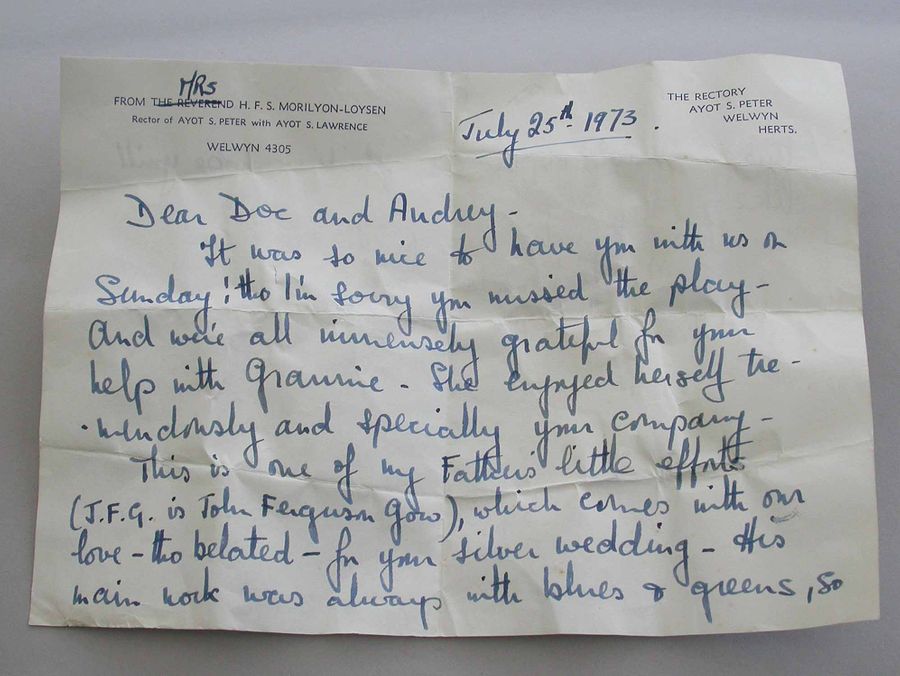 MRS
FROM THE REVEREND H. F. S. MORILYON-LOYSEN
Rector of AYOT S. PETER with AYOT S. LAWRENCE
WELWYN 4305
THE RECTORY
AYOT S. PETER
WELWYN
HERTS.
July 25th 1973.
Dear Doc and Audrey -
It was so nice to have you with us on
Sunday! tho I'm sorry you missed the play -
And we're all immensely grateful for your
help with Grannie - She enjoyed herself tre-
-mendously and specially your company -
This is one of my Father's little efforts
(J.F.G. is John Ferguson Gow), which comes with our
love - tho belated - for your silver wedding - His
main work was always with blues & greens, so